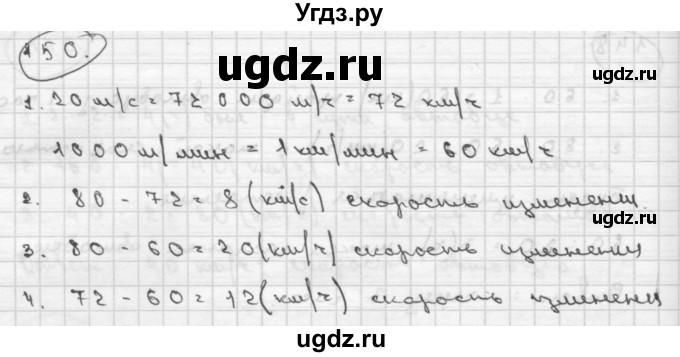 Угдз.ру
150.
ugdz.ru
ugdz.ru
1. 20 м/с = 72 000 м/ч = 72 км/ч
1000 м/мин = 1 км/мин = 60 км/ч
2. 80 - 72 = 8 (км/с) скорость изменени
ugdz.ru
3. 80 - 60 = 20 (км/ч) скорость изменени
4. 72 - 60 = 12 (км/ч) скорость изменени
ugdz.ru
ugdz.ru